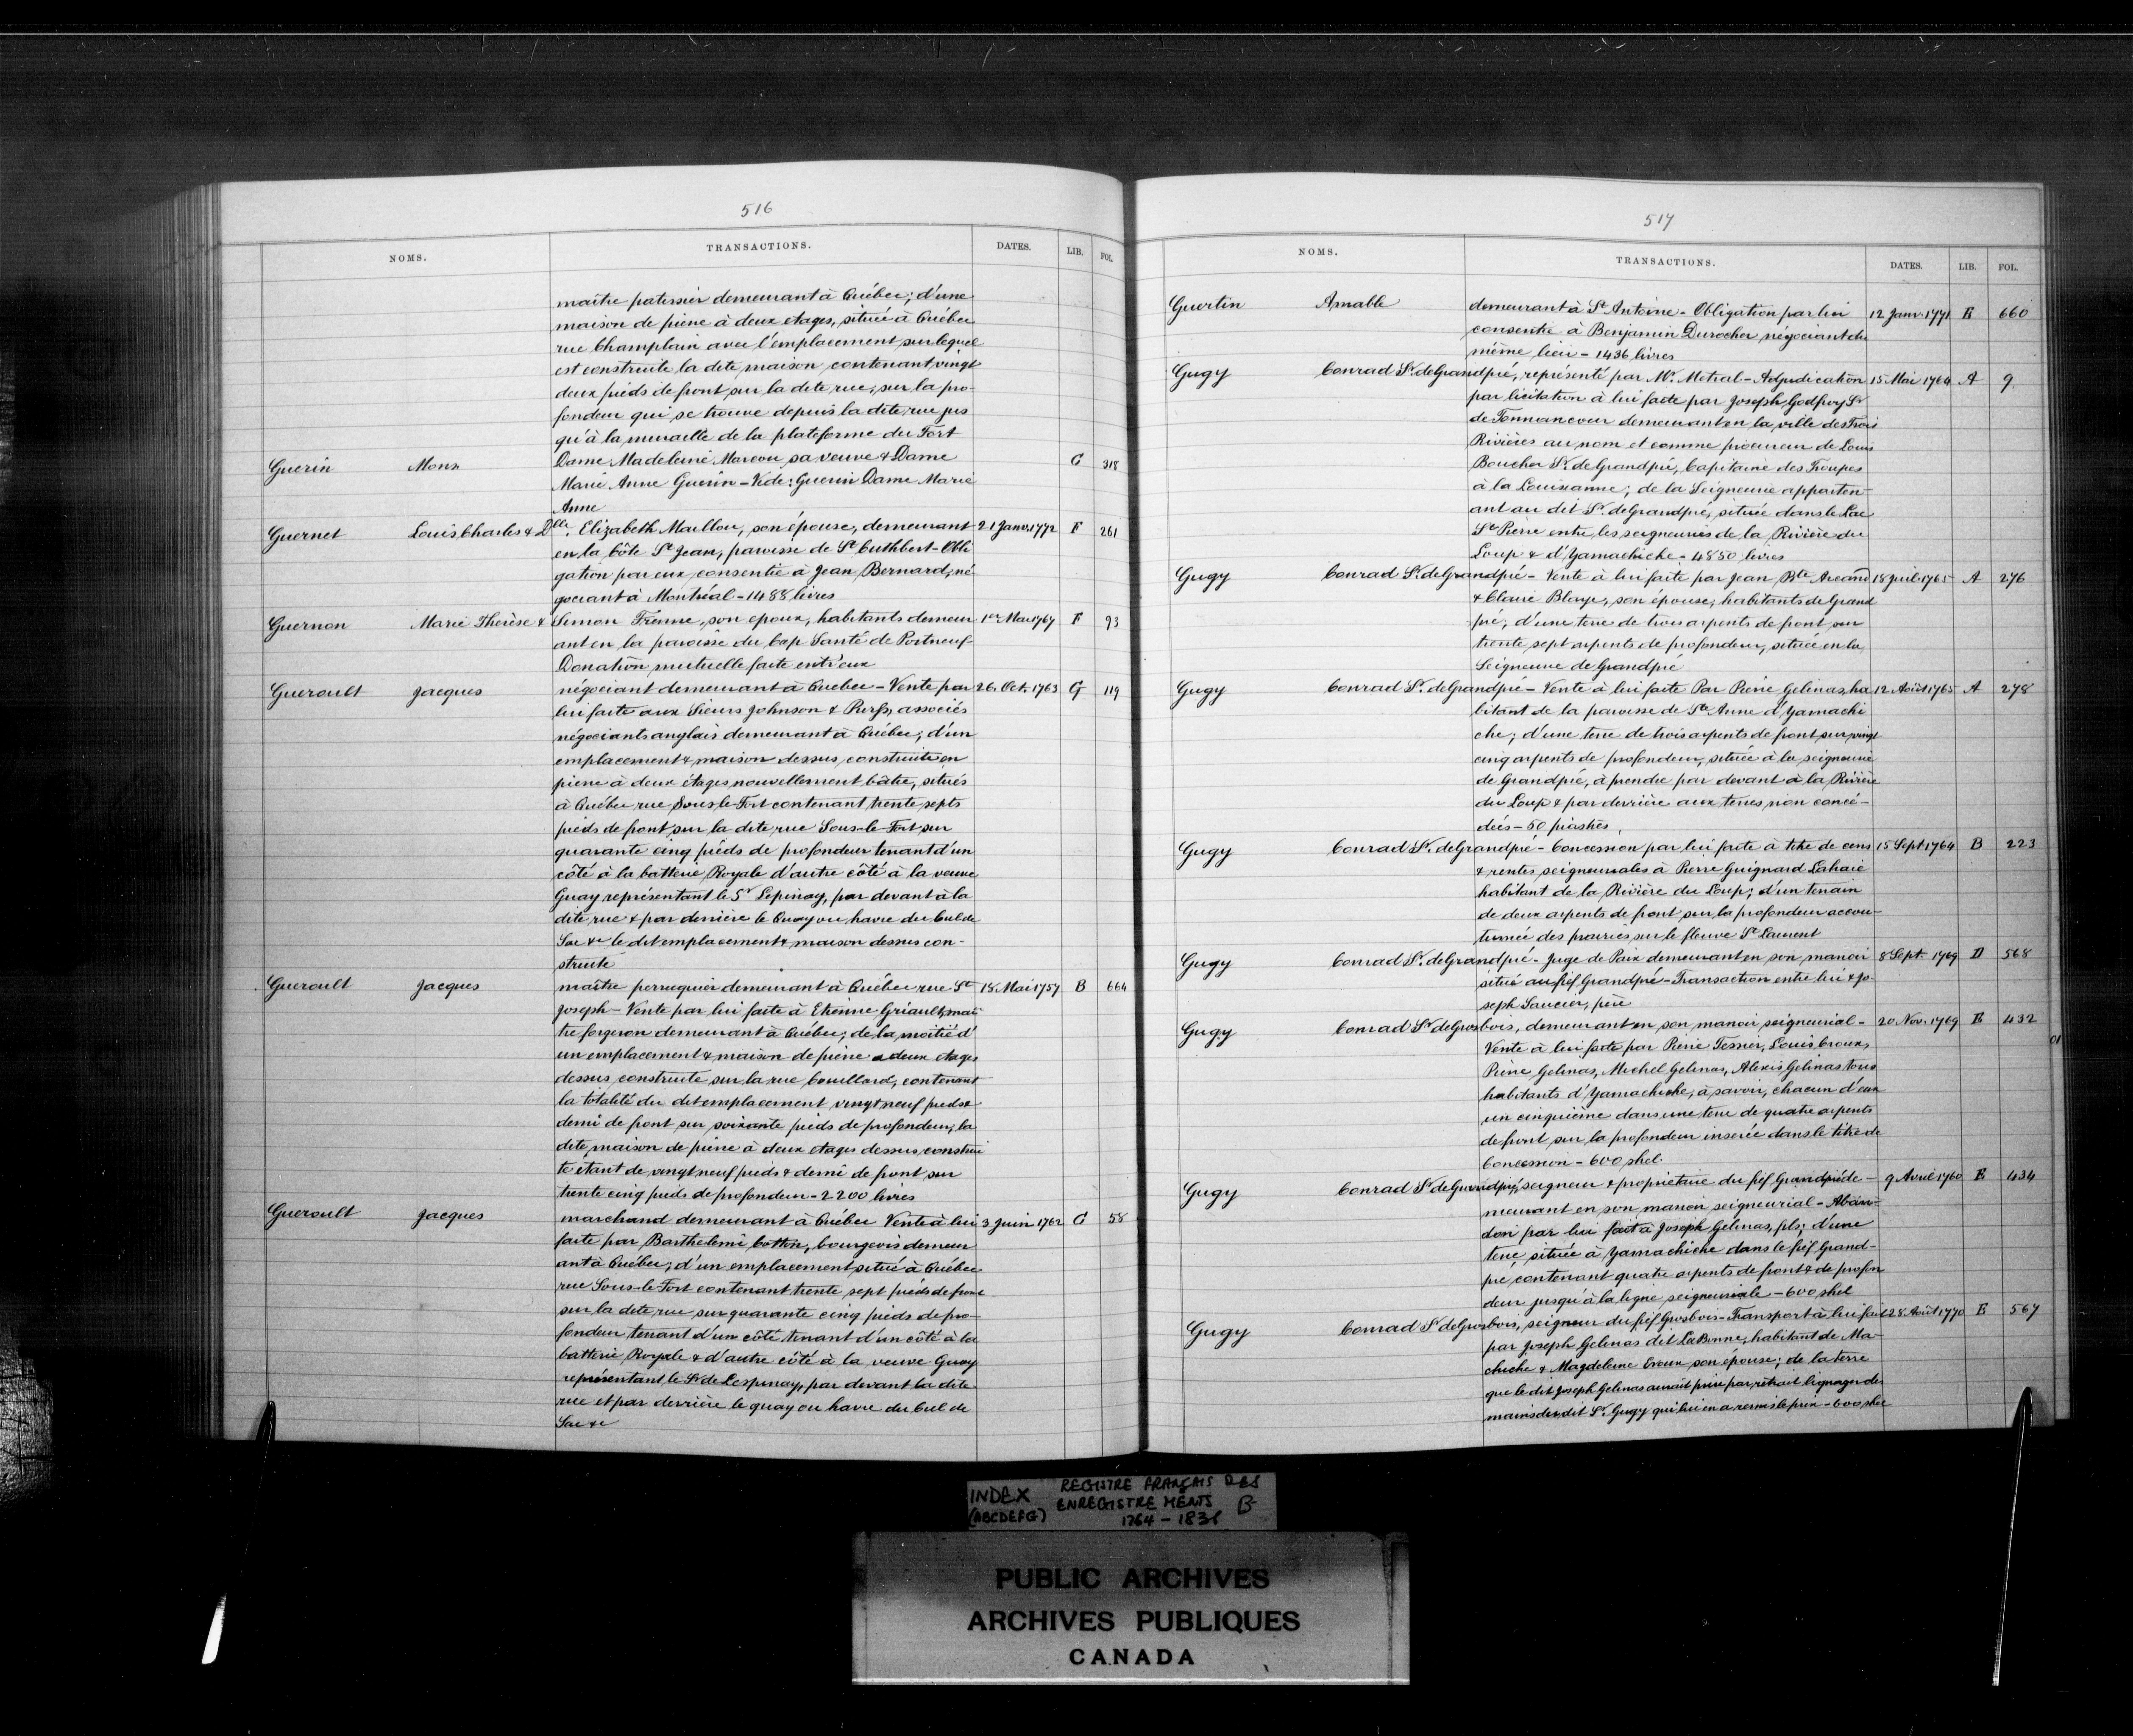 516
NOMS. TRANSACTIONS. DATES. LIB. FOL.
maître patissier demeurant à Québec; d'une
maison de pierre à deux etages, située à Québec
rue Champlain avec l'emplacement sur lequel
est construite la dite maison contenant vingt
deux pieds de front sur la dite rue, sur la pro-
fondeur qui se trouve depuis la dite rue jus
qu'à la muraille de la plateforme du Fort
Guerin Monr Dame Madeleine Marcou sa veuve & Dame C 318
Marie Anne Guerin - Vide: Guerin Dame Marie
Anne
Guernet Louis Charles & Dlle. Elizabeth Maillou, son épouse, demeurant 21 Janv. 1772 F 261
en la Côte St Jean, paroisse de St Cuthbert - Obli
gation par eux consentie à Jean Bernard, né
gociant à Montréal - 1488 livres
Guernon Marie Thérèse & Simon Frenne, son epoux, habitants demeur 1er Mai 1767 F 93
ant en la paroisse du Cap Santé de Portneuf
Donation mutuelle faite entr'eux
Gueroult Jacques négociant demeurant à Quebec - Vente par 26 Oct. 1763 G 119
lui faite aux Sieurs Johnson & Purss, associés
négociants anglais demeurant à Québec; d'un
emplacement & maison dessus construite en
pierre à deux étages nouvellement bâtie, situés
à Québec rue Sous-le-Fort contenant trente septs
pieds de front sur la dite rue Sous-le-Fort sur
quarante cinq pieds de profondeur tenant d'un
côté à la batterie Royale d'autre côté à la veuve
Guay représentant le Sr Lepinay, par devant à la
dite rue & par derrière le Quay ou havre du Cul de
Sac &c le dit emplacement & maison dessus con-
struite
Gueroult Jacques maître perruquier demeurant à Québec rue St 18 Mai 1757 B 664
Joseph - Vente par lui faite à Etienne Griault, mai
tre forgeron demeurant à Québec; de la moitié d'
un emplacement & maison de pierre à deux etages
dessus construite sur la rue Couillard, contenant
la totalité du dit emplacement vingt neuf pieds &
demi de front sur soixante pieds de profondeur, la
dite maison de pierre à deux etages dessus construi
te étant de vingt neuf pieds & demi de front sur
trente cinq pieds de profondeur - 2200 livres
Gueroult Jacques marchand demeurant à Québec Vente à lui 3 Juin 1762 C 58
faite par Barthelemi Cotton, bourgeois demeur
ant à Québec; d'un emplacement situé à Québec
rue Sous-le-Fort contenant trente sept pieds de front
sur la dite rue sur quarante cinq pieds de pro-
fondeur tenant d'un côté tenant d'un côté à la
batterie Royale & d'autre côté à la veuve Guay
représentant le Sr de Lespinay, par devant la dite
rue et par derrière le quay ou havre du Cul de
Sac &c
517
NOMS. TRANSACTIONS. DATES. LIB. FOL.
Guertin Amable demeurant à St Antoine - Obligation par lui 12 Janv. 1771 E 660
consentie à Benjamin Durocher négociant du
même lieu - 1436 livres
Gugy Conrad Sr. de Grandpré, représenté par Mr. Metral - Adjudication 15 Mai 1764 A 9
par licitation à lui faite par Joseph Godfroy Sr
de Tonnancour demeurant en la ville des Trois
Rivières au nom et comme procureur de Louis
Boucher Sr. de Grandpré, Capitaine des Troupes
à la Louisianne; de la Seigneurie apparten-
ant au dit Sr. de Grandpré, située dans le Lac
St Pierre entre les seigneuries de la Rivière du
Loup & d'Yamachiche - 4850 livres
Gugy Conrad Sr. de Grandpré - Vente à lui faite par Jean Bte Arcand 18 Juil. 1765 A 276
& Claire Blaye, son épouse, habitants de Grand
pré; d'une terre de trois arpents de front sur
trente sept arpents de profondeur, située en la
Seigneurie de Grandpré
Gugy Conrad Sr. de Grandpré - Vente à lui faite Par Pierre Gelinas, ha 12 Août 1765 A 278
bitant de la paroisse de Ste Anne d'Yamachi
che; d'une terre de trois arpents de front sur vingt
cinq arpents de profondeur, située à la seigneurie
de Grandpré, à prendre par devant à la Rivière
du Loup & par derrière aux terres non concé-
dées - 50 piastres
Gugy Conrad Sr. de Grandpré - Concession par lui faite à titre de cens 15 Sept 1764 B 223
& rentes seigneuriales à Pierre Guignard Lahaie
habitant de la Rivière du Loup; d'un terrain
de deux arpents de front sur la profondeur accou-
tumée des prairies sur le fleuve St Laurent
Gugy Conrad Sr. de Grandpré - Juge de Paix demeurant en son manoir 8 Sept. 1769 D 568
situé au fief Grandpré - Transaction entre lui & Jo
seph Saucier, père
Gugy Conrad Sr de Grosbois, demeurant en son manoir seigneurial - 20 Nov. 1769 E 432
Vente à lui faite par Pierre Tesner, Louis Croux,
Pierre Gelinas, Michel Gelinas, Alexis Gelinas tous
habitants d'Yamachiche, à savoir, chacun d'eux
un cinquième dans une terre de quatre arpents
de front sur la profondeur inserée dans le titre de
Concession - 600 shel.
Gugy Conrad Sr de Grandpré, seigneur & propriétaire du fief Grandpré de- 9 Avril 1760 E 434
meurant en son manoir seigneurial - Aban-
don par lui fait à Joseph Gelinas, fils; d'une
terre, située à Yamachiche dans le fief Grand-
pré contenant quatre arpents de front & de profon
deur jusqu'à la ligne seigneuriale - 600 shel
Gugy Conrad Sr de Grosbois, seigneur du fief Grosbois - Transport à lui fait 28 Août 1770 E 567
par Joseph Gelinas dit LaBonne, habitant de Ma-
chiche & Magdeleine Croux son épouse; de la terre
que le dit Joseph Gelinas aurait prise par retrait lignager des
mains du dit Sr. Gugy qui lui en a remis le prix - 600 shel
INDEX (ABCDEFG) REGISTRE FRANÇAIS DES
ENREGISTREMENTS B
1764 - 1836
PUBLIC ARCHIVES
ARCHIVES PUBLIQUES
CANADA